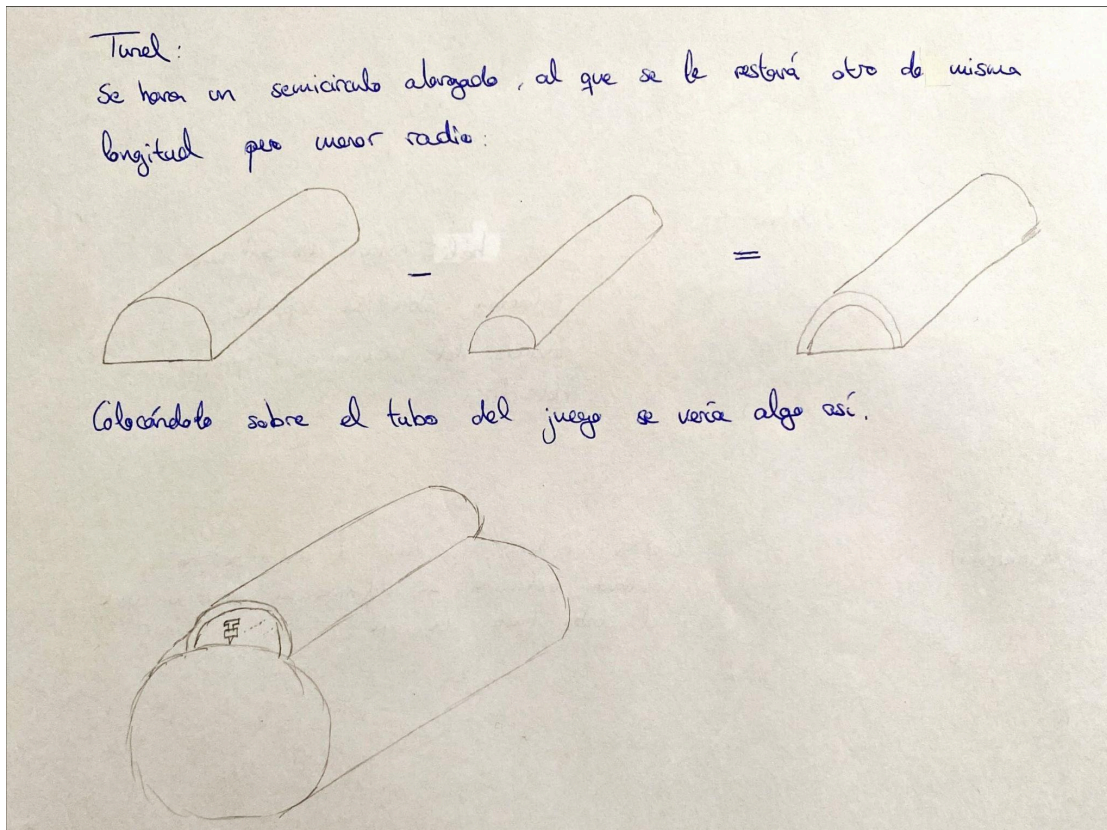 Tunel:
Se hará un semicirculo alargado, al que se le restará otro de misma
longitud pero menor radio:
- =
Colocándolo sobre el tubo del juego se vería algo así.